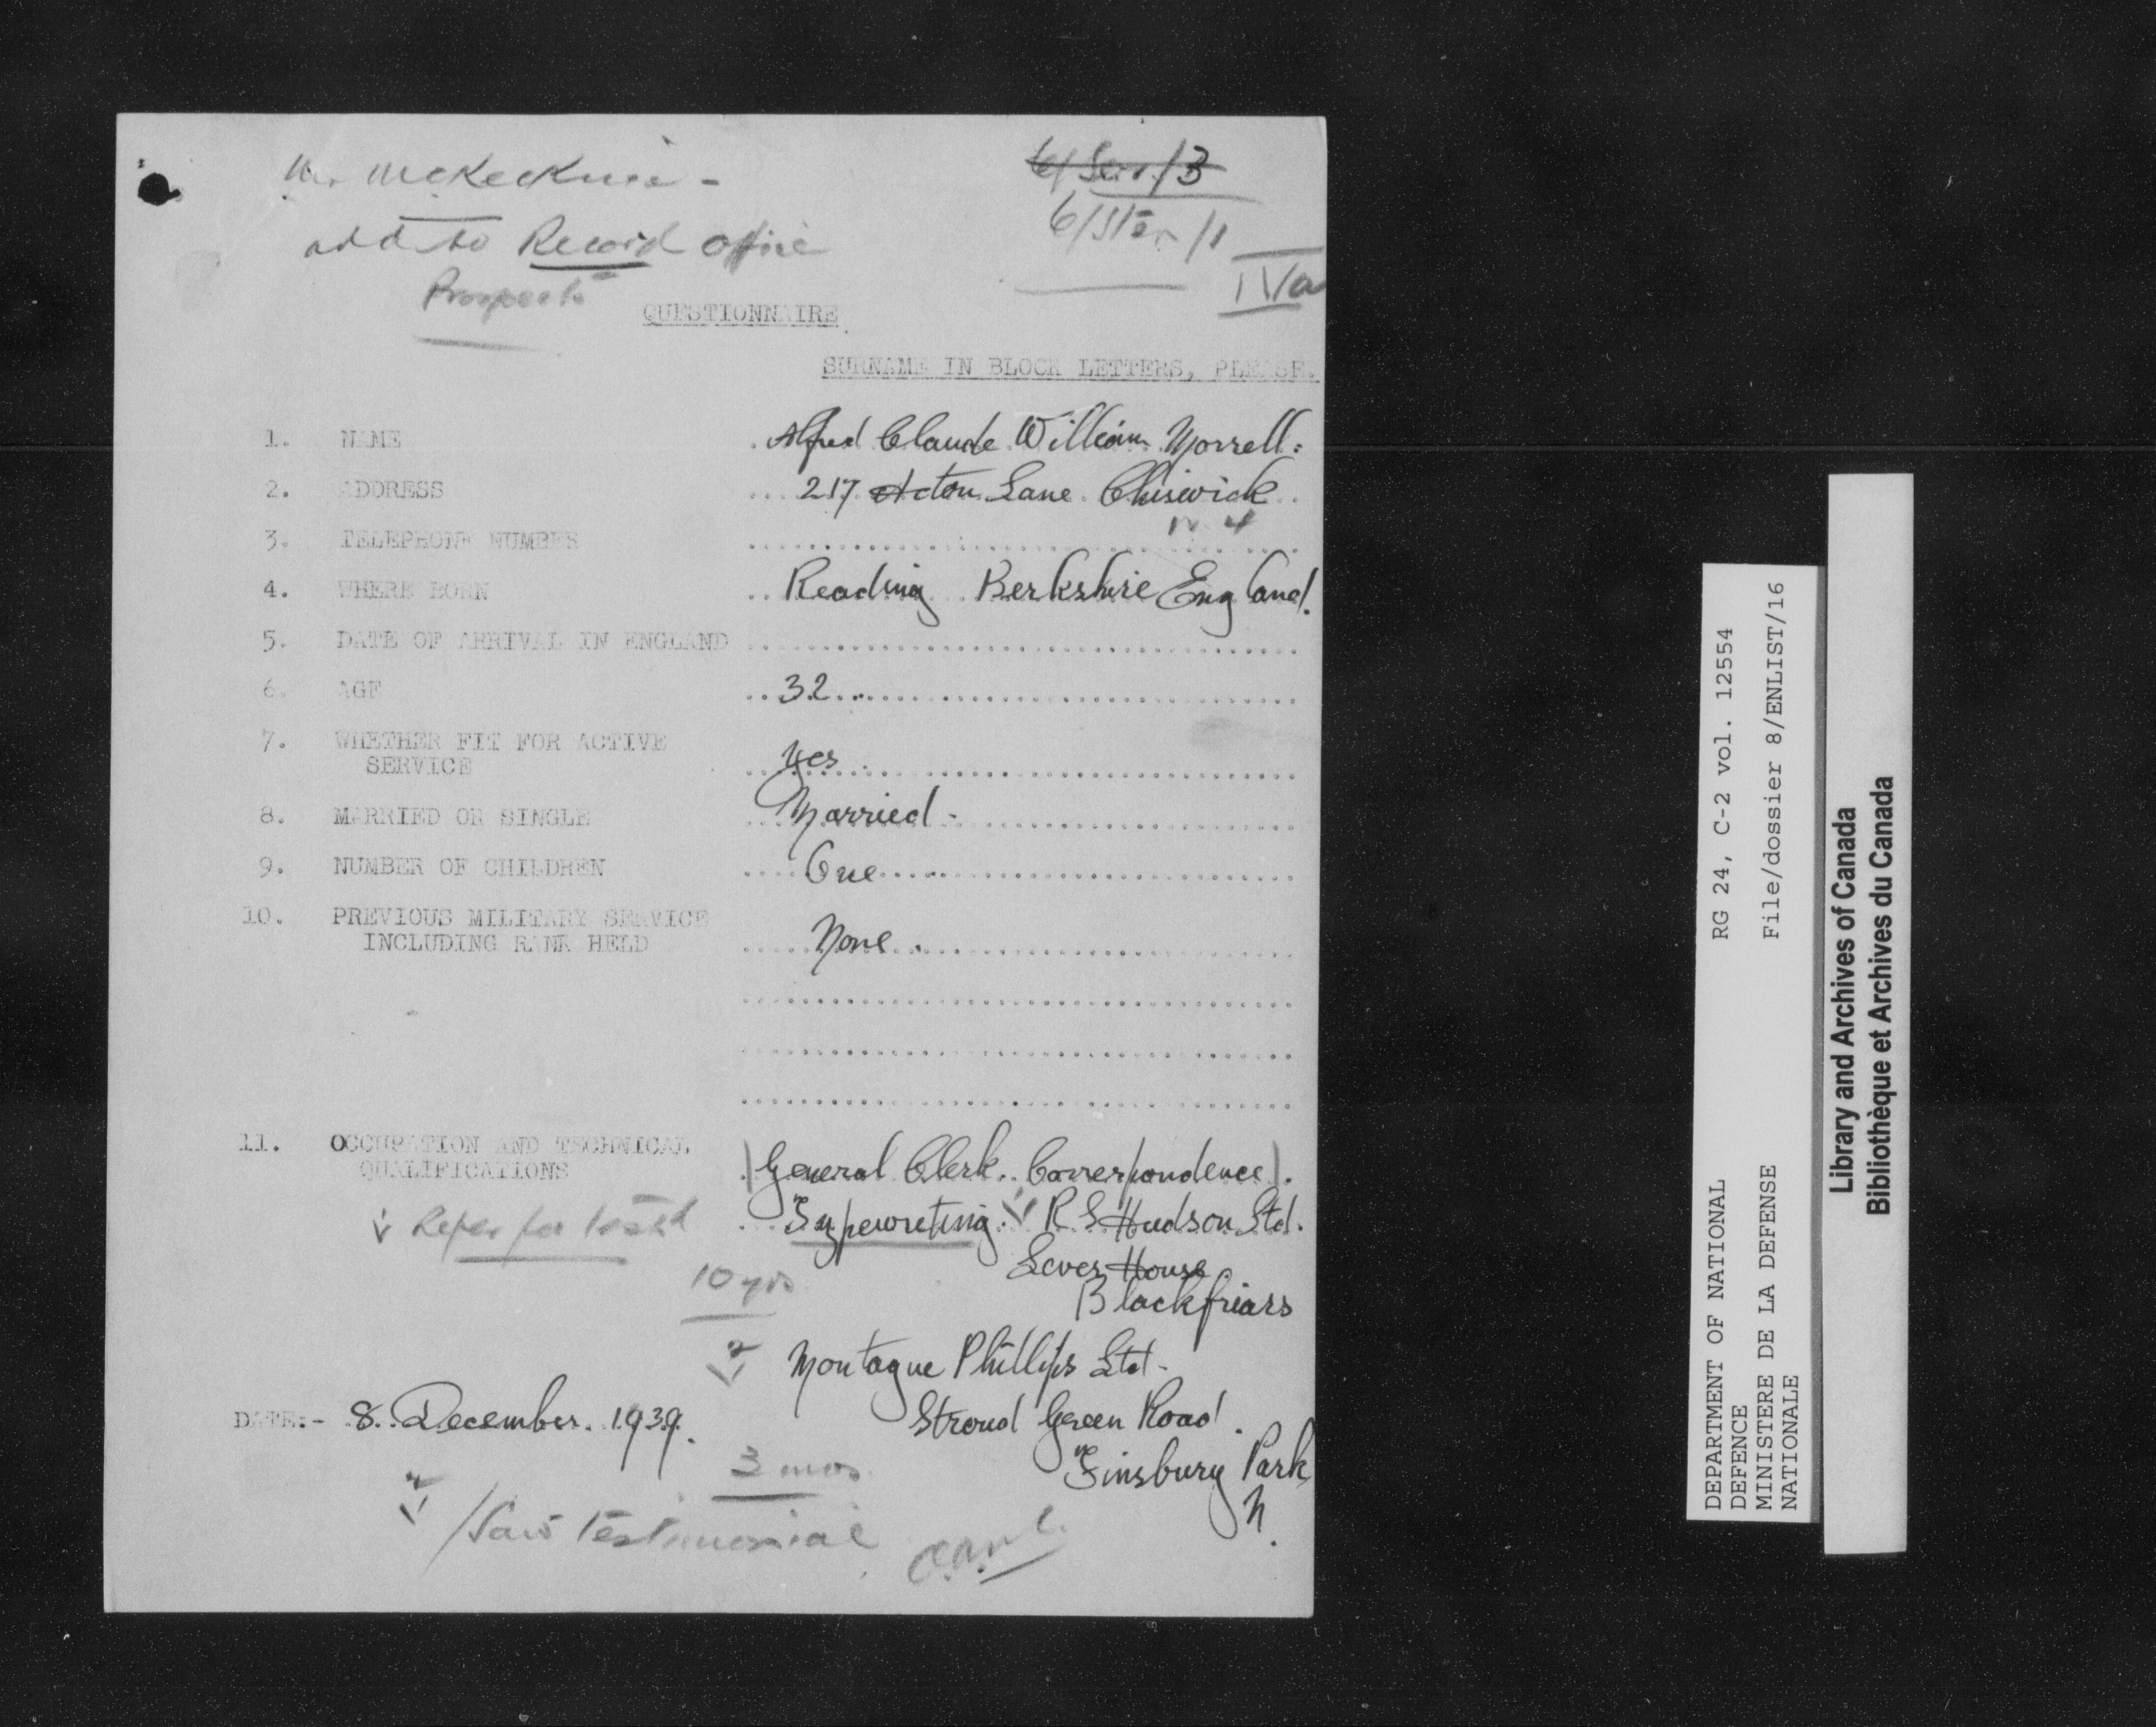 Mr. McKecknie -
add to Record Office
Prospects
6/Ser./3
6/Sten/1
IVa
QUESTIONNAIRE
SURNAME IN BLOCK LETTERS, PLEASE.
1. NAME . Alfred Claude William Morrell.
2. ADDRESS ... 217 Acton Lane Chiswick
W 4
3. TELEPHONE NUMBER
4. WHERE BORN .. Reading Berkshire England.
5. DATE OF ARRIVAL IN ENGLAND
6. AGE .. 32
7. WHETHER FIT FOR ACTIVE
SERVICE Yes
8. MARRIED OR SINGLE Married -
9. NUMBER OF CHILDREN One
10. PREVIOUS MILITARY SERVICE
INCLUDING RANK HELD None.
11. OCCUPATION AND TECHNICAL
QUALIFICATIONS (General Clerk. Correspondence).
Refer for test Typewriting. R S Hudson Ltd.
Lever House
10 yrs Blackfriars
Montague Phillips Ltd -
DATE:- 8. December. 1939. Stroud Green Road.
3 mos Finsbury Park
N.
/Saw testimonial
RG 24, C-2 vol. 12554
File/dossier 8/ENLIST/16
DEPARTMENT OF NATIONAL
DEFENCE
MINISTERE DE LA DEFENSE
NATIONALE
Library and Archives of Canada
Bibliothèque et Archives du Canada